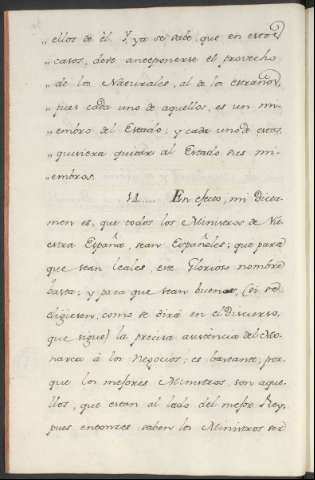 „ ellos de él. Y ya se sabe, que en estos
„ casos, deve anteponerse el provecho
„ de los Naturales, al de los estraños,
„ pues cada uno de aquellos, es un mi-
„ embro del Estado; y cada uno de estos,
„ quisiera quitar al Estado sus mi-
„ embros.
11.... En efecto, mi Dicta-
men es, que todos los Ministros de Vu-
estra España, sean Españoles; que para
que sean leales, este Glorioso nombre
basta; y para que sean buenos, (si se
eligiesen, como se dirá en el Discurso,
que sigue) la precisa asistencia del Mo-
narca á los Negocios; es bastante, por-
que los mejores Ministros, son aque-
llos, que estan al lado del mejor Rey,
pues entonces saben los Ministros ser